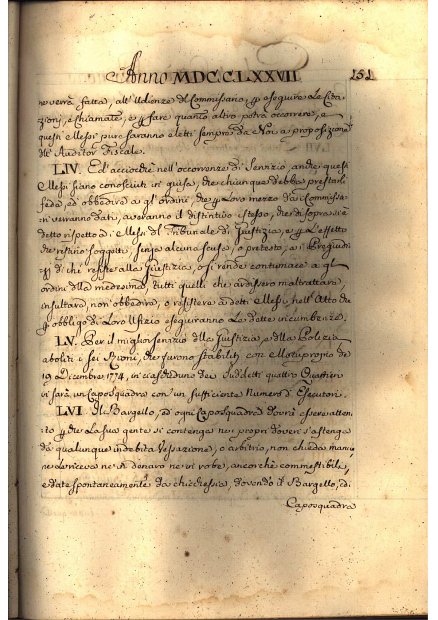 Anno MDCCLXXVII 151
ne verrà fatta, all'Udienze del Commissario per eseguire le Cita
zioni, e chiamate, e per fare quanto altro potrà occorrere, e
questi Messi pure saranno eletti sempre da Noi a proposizione
dell' Auditor Fiscale.
LIV. Ed acciocchè nell'occorrenze di Servizio anche questi
Messi siano conosciuti in guisa, che chiunque debba prestarli
fede, ed obbedire a gl'ordini, che per loro mezzo da i Commissa-
ri verranno dati, averanno il distintivo istesso, che di sopra si è
detto rispetto a i Messi del Tribunale di Giustizia, e per l'effetto
che restino soggetti, senza alcuna scusa, o pretesto, a i Pregiudi
zi di chi resiste alla Giustizia, o si rende contumace a gl'
ordini della medesima, tutti quelli che ardissero maltrattare,
insultare, non obbedire, o resistere a detti Messi, nell'Atto che
per obbligo di loro Ufizio eseguiranno le dette incumbenze.
LV. Per il miglior servizio della Giustizia, e della Polizia
aboliti i sei Rioni, che furono stabiliti con Motuproprio de
19 Decembre 1774, in ciascheduno de Suddetti quattro Quartieri
vi sarà un Caposquadra con un sufficiente Numero d'Esecutori.
LVI Il Bargello, ed ogni Caposquadra dovrà essere atten
to per che la sua gente si contenga nei propri doveri, s'astenga
da qualunque indebita Vessazione, o arbitrio, non chieda mance
ne le riceva ne in denaro ne in robe, ancorchè commestibili,
e date spontaneamente da chichessia, dovendo il Bargello, ed i
Caposquadra